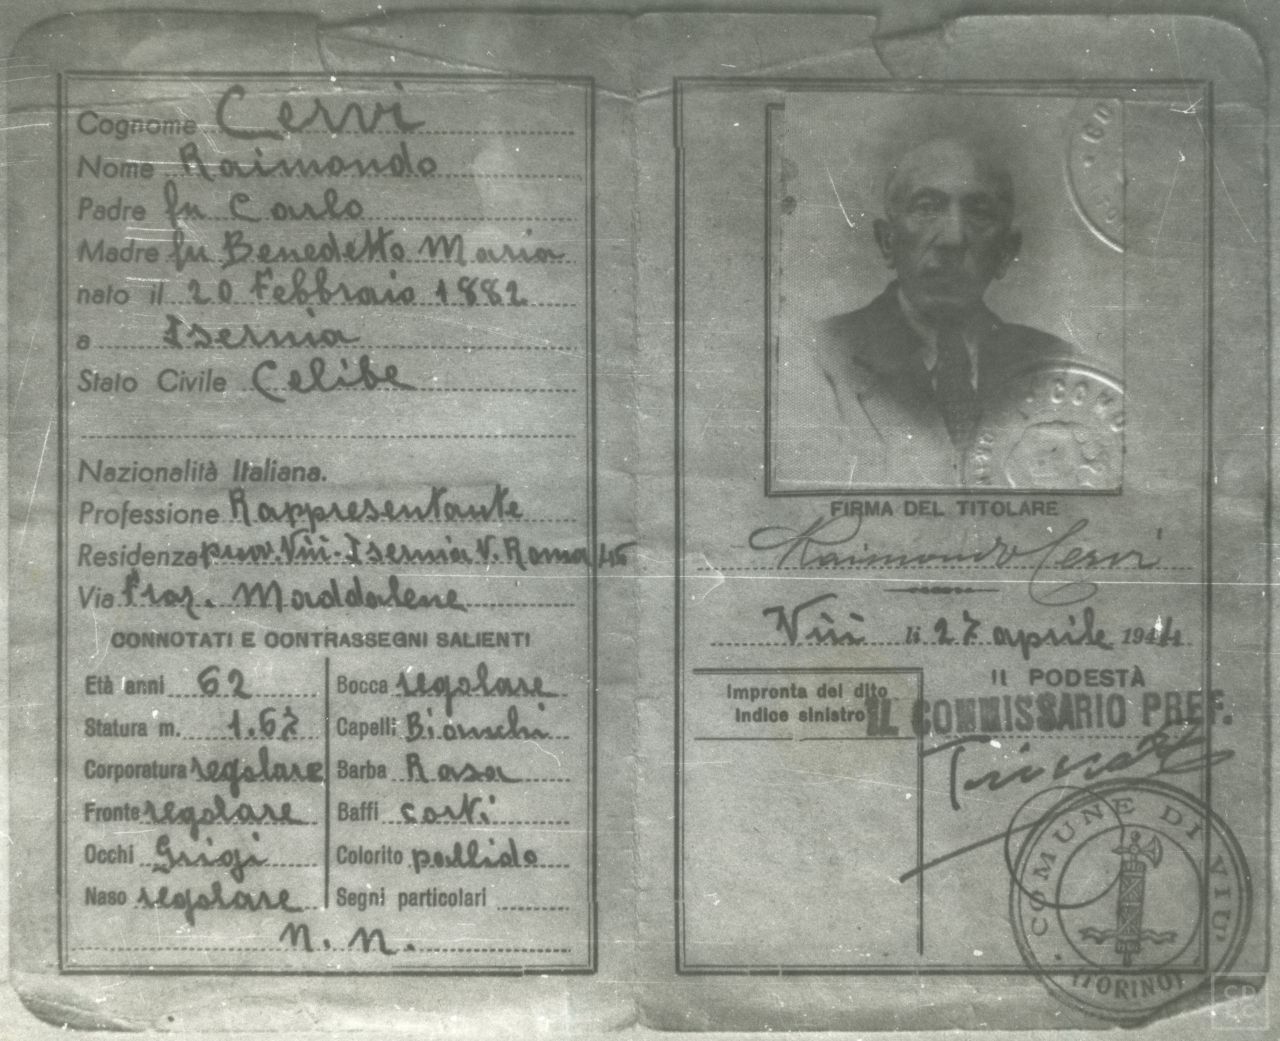 Cognome Cervi
Nome Raimondo
Padre fu Carlo
Madre fu Benedetto Maria
nato il 20 Febbraio 1882
a Isernia
Stato Civile Celibe
Nazionalità Italiana.
Professione Rappresentante
Residenza prov. Viù - Isernia V. Roma 45
Via Fraz. Maddalene
CONNOTATI E CONTRASSEGNI SALIENTI
Età anni 62
Statura m. 1.67
Corporatura regolare
Fronte regolare
Occhi Grigi
Naso regolare
Bocca regolare
Capelli Bianchi
Barba Rasa
Baffi corti
Colorito pallido
Segni particolari
n. n.
FIRMA DEL TITOLARE
Raimondo Cervi
Viù li 27 aprile 1944
Il PODESTÀ
IL COMMISSARIO PREF.
Impronta del dito
Indice sinistro
COMUNE DI VIU'
(TORINO)